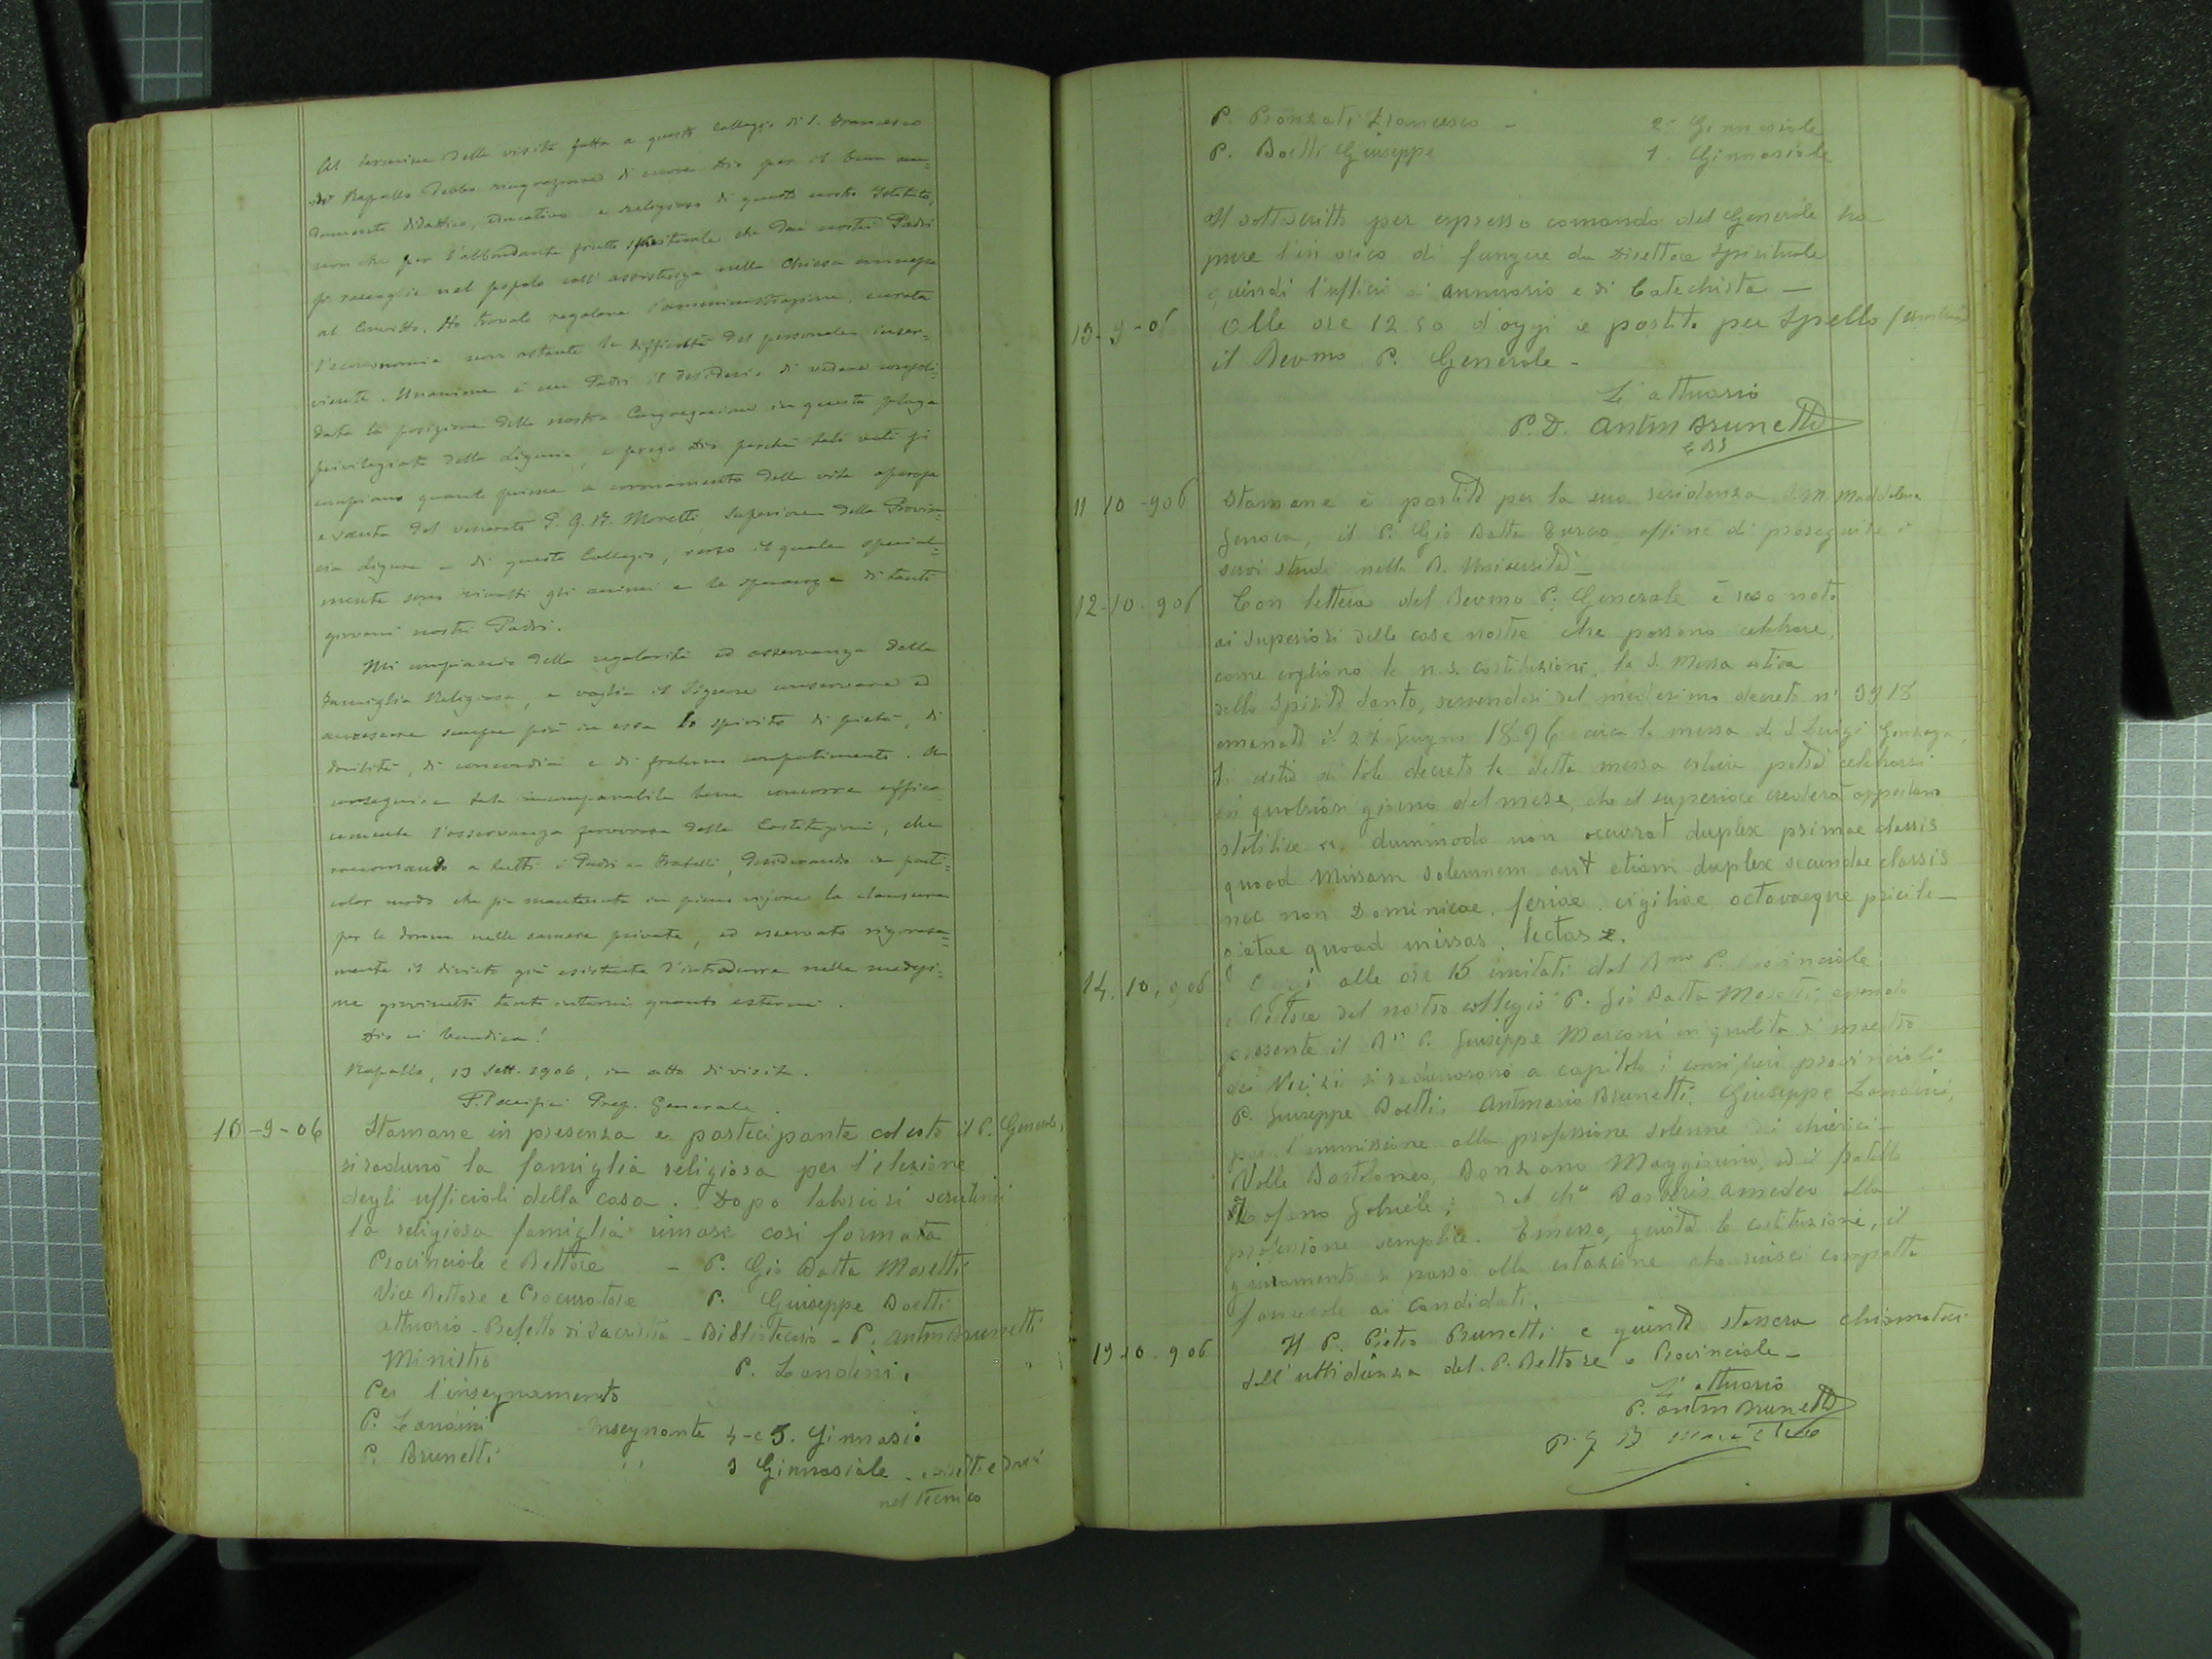 Al termine della visita fatta a questo Collegio di S. Francesco
di Rapallo debbo ringraziare di cuore Dio per il buon an=
damento didattico, educativo e religioso di questo nostro Istituto,
non che per l'abbondante frutto spirituale che dai nostri Padri
si raccoglie nel popolo coll'assistenza nella Chiesa annessa
al Convitto. Ho trovato regolare l'amministrazione, curata
l'economia non ostante le difficoltà del personale inser=
viente. Unanime è nei Padri il desiderio di vedere consoli=
data la posizione della nostra Congregazione in questa plaga
privilegiata della Liguria, e prego Dio perchè tali voti si
compiano quanto prima a coronamento della vita operosa
e santa del venerato P. G. B. Moretti, Superiore della Provin=
cia Ligure e di questo Collegio, verso il quale special=
mente sono rivolti gli animi e le speranze di tanti
giovani nostri Padri.
Mi compiaccio della regolarità ed osservanza della
Famiglia Religiosa, e voglia il Signore conservare ed
accrescere sempre più in essa lo spirito di pietà, di
docilità, di concordia e di fraterno compatimento. A
conseguire tale incomparabile bene concorre effica=
cemente l'osservanza fervorosa delle Costituzioni, che
raccomando a tutti i Padri e Fratelli, desiderando in parti=
colar modo che sia mantenuta in pieno vigore la clausura
per le donne nelle camere private, ed osservato rigorosa=
mente il divieto già esistente d'introdurre nelle medesi=
me giovinetti tanto interni quanto esterni.
Dio ci benedica!
Rapallo, 13 Sett. 1906, in atto di visita.
P. Pacifici Prep. Generale.
10-9-06 Stamane in presenza e partecipante col voto il P. Generale,
si radunò la famiglia religiosa per l'elezione
degli ufficiali della casa. Dopo laboriosi scrutinii
la religiosa famiglia rimase così formata
Provinciale e Rettore - P. Gio Batta Moretti
Vice Rettore e Procuratore P. Giuseppe Boetti
Attuario - Prefetto di Sacristia - Bibliotecario - P. Antm Brunetti
Ministro P. Landini.
Per l'insegnamento
P. Landini Insegnante 4 - e 5. Ginnasio
P. Brunetti " 3 Ginnasiale
nel tecnico
P. Pronzati Francesco - 2° Ginnasiale
P. Boetti Giuseppe 1. Ginnasiale
Il sottoscritto per espresso comando del Generale ha
pure l'incarico di fungere da Direttore Spirituale
quindi l'ufficio di annuario e di Catechista -
13-9-06 Alle ore 12.50 d'oggi è partito per Spello
il Revmo P. Generale -
L'attuario
P. D. Antm Brunetti
CRS
11 10-906 Stamane è partito per la sua residenza S. M. Maddalena
Genova, il P. Gio Batta Turco, affine di proseguire i
suoi studi nella R. Università -
12-10-906 Con lettera del Revmo P. Generale è reso noto
ai Superiori delle case nostre che possono celebrare,
come vogliono le n. s. costituzioni, la S. Messa votiva
dello Spirito Santo, servendosi del medesimo decreto n° 3918
emanato il 27 Giugno 1896 circa la messa di S Luigi Gonzaga,
In virtù di tale decreto la detta messa potrà celebrarsi
in qualsiasi giorno del mese, che il superiore crederà opportuno
stabilire dummodo non occurrat duplex primae classis
quoad Missam solemnem aut etiam duplex secundae classis
nec non Dominicae, feriae, vigiliae, octavaeque privile-
giatae quoad missas lectas.
14.10.906 Oggi alle ore 15 invitati dal Rmo P. Provinciale
e Rettore del nostro collegio P. Gio Batta Moretti, essendo
presente il P. Giuseppe Marconi in qualità di maestro
dei Novizi si radunarono a capitolo i consiglieri provinciali
P. Giuseppe Boetti, Antmario Brunetti, Giuseppe Landini,
per l'ammissione alla professione solenne dei chierici
Valle Bartolomeo, Donzano Maggiorino, ed il fratello
Gabriele; del ch° Amedeo alla
professione semplice. Emesso, giusta le costituzioni, il
giuramento si passò alla votazione che riuscì compatta
favorevole ai candidati.
19 10.906 Il P. Pietro Brunetti è giunto stassera chiamatoci
dall'ubbidienza del P. Rettore e Provinciale -
L'attuario
P. Antm Brunetti
P. G B Moretti